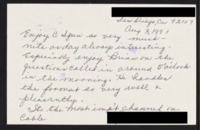 San Diego, Ca 92107
Aug 3, 1981
Enjoy C Span so very much -
nite or day always interesting -
Especially enjoy Brian on the
questions called in around 5 o'clock
in the morning. He handles
the format so very well &
pleasantly.
Its the most important channel on
Cable